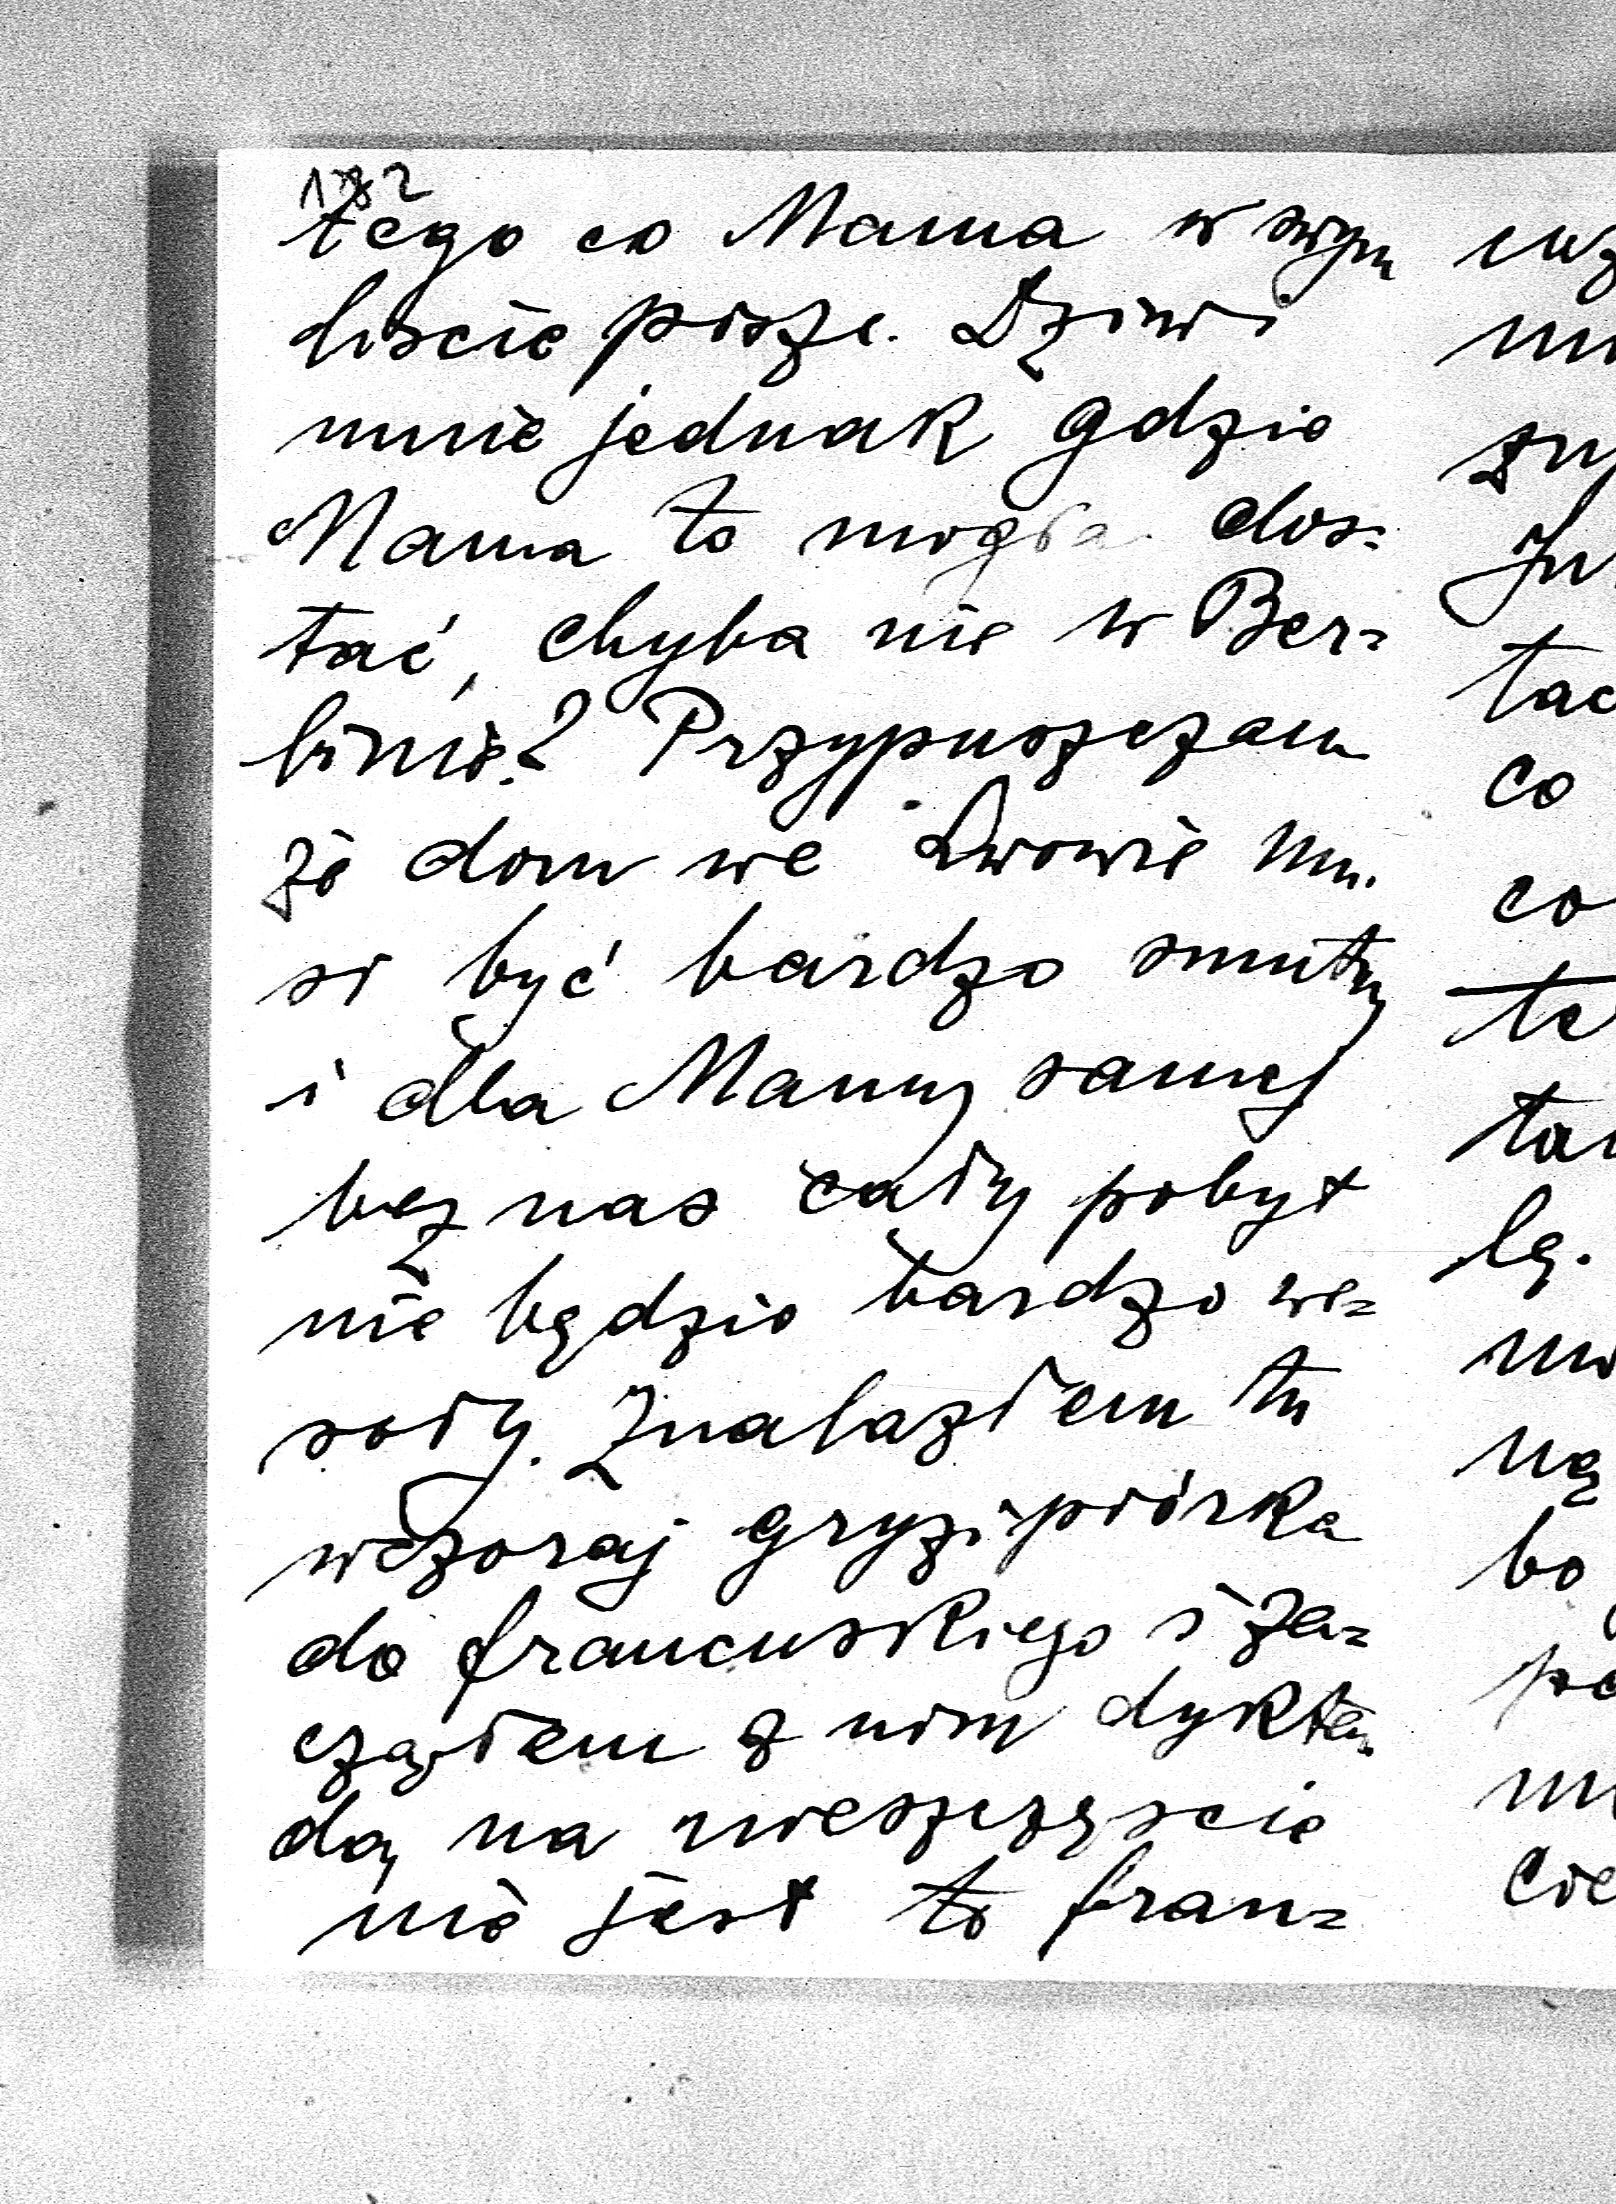 182
tego co Mama w swym
liscie pisze. Dziwi
mnie jednak gdzie
Mama to mogła dos=
tać, chyba nie w Ber=
linie? Przypuszczam
że dom we Lwowie mu.
si być bardzo smutny
i dla Mamy samej
bez nas cały pobyt
nie będzie bardzo we=
soły. Znalazłem tu
wczoraj gryzipiórka
do francuskiego i za=
cząłem z nim dykta.
da, na nieszczęście
nie jest to fran=
tac
co
co
te
lę.
nę
bo
cie